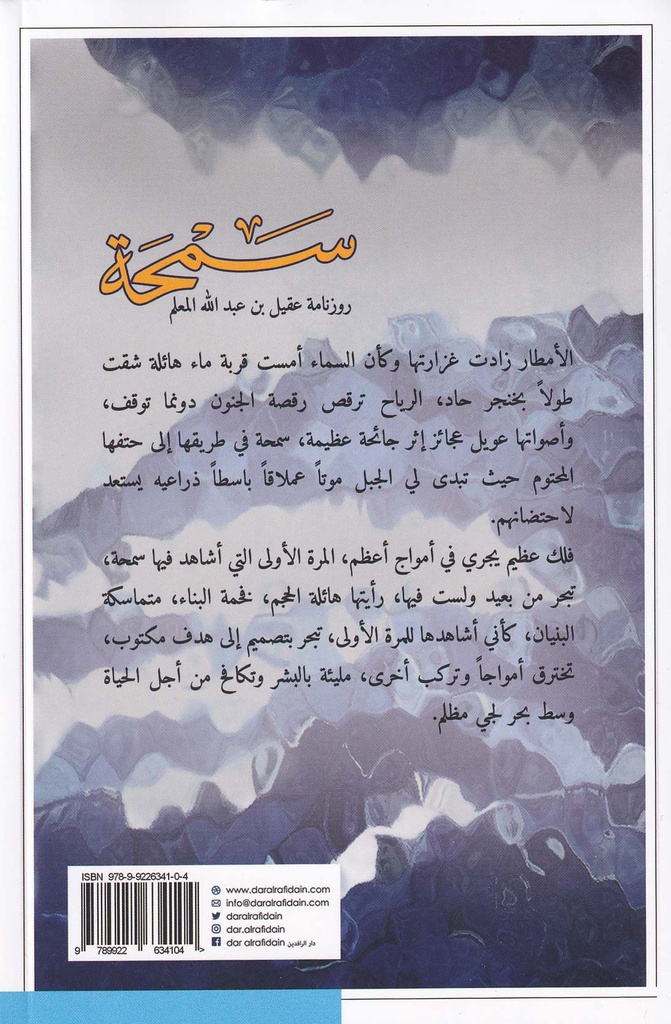 سَمْحَة
روزنامة عقيل بن عبد الله المعلم
الأمطار زادت غزارتها وكأن السماء أمست قربة ماء هائلة شقت
طولاً بخنجر حاد، الرياح ترقص رقصة الجنون دونما توقف،
وأصواتها عويل عجائز إثر جائحة عظيمة، سمحة في طريقها إلى حتفها
المحتوم حيث تبدى لي الجبل موتاً عملاقاً باسطاً ذراعيه يستعد
لاحتضانهم.
فلك عظيم يجري في أمواج أعظم، المرة الأولى التي أشاهد فيها سمحة،
تبحر من بعيد ولست فيها، رأيتها هائلة الحجم، فخمة البناء، متماسكة
البنيان، كأني أشاهدها للمرة الأولى، تبحر بتصميم إلى هدف مكتوب،
تخترق أمواجاً وتركب أخرى، مليئة بالبشر وتكافح من أجل الحياة
وسط بحر لجي مظلم.
ISBN 978-9-9226341-0-4
9 789922 634104 >
www.daralrafidain.com
info@daralrafidain.com
daralrafidain
dar.alrafidain
dar alrafidain دار الرافدين